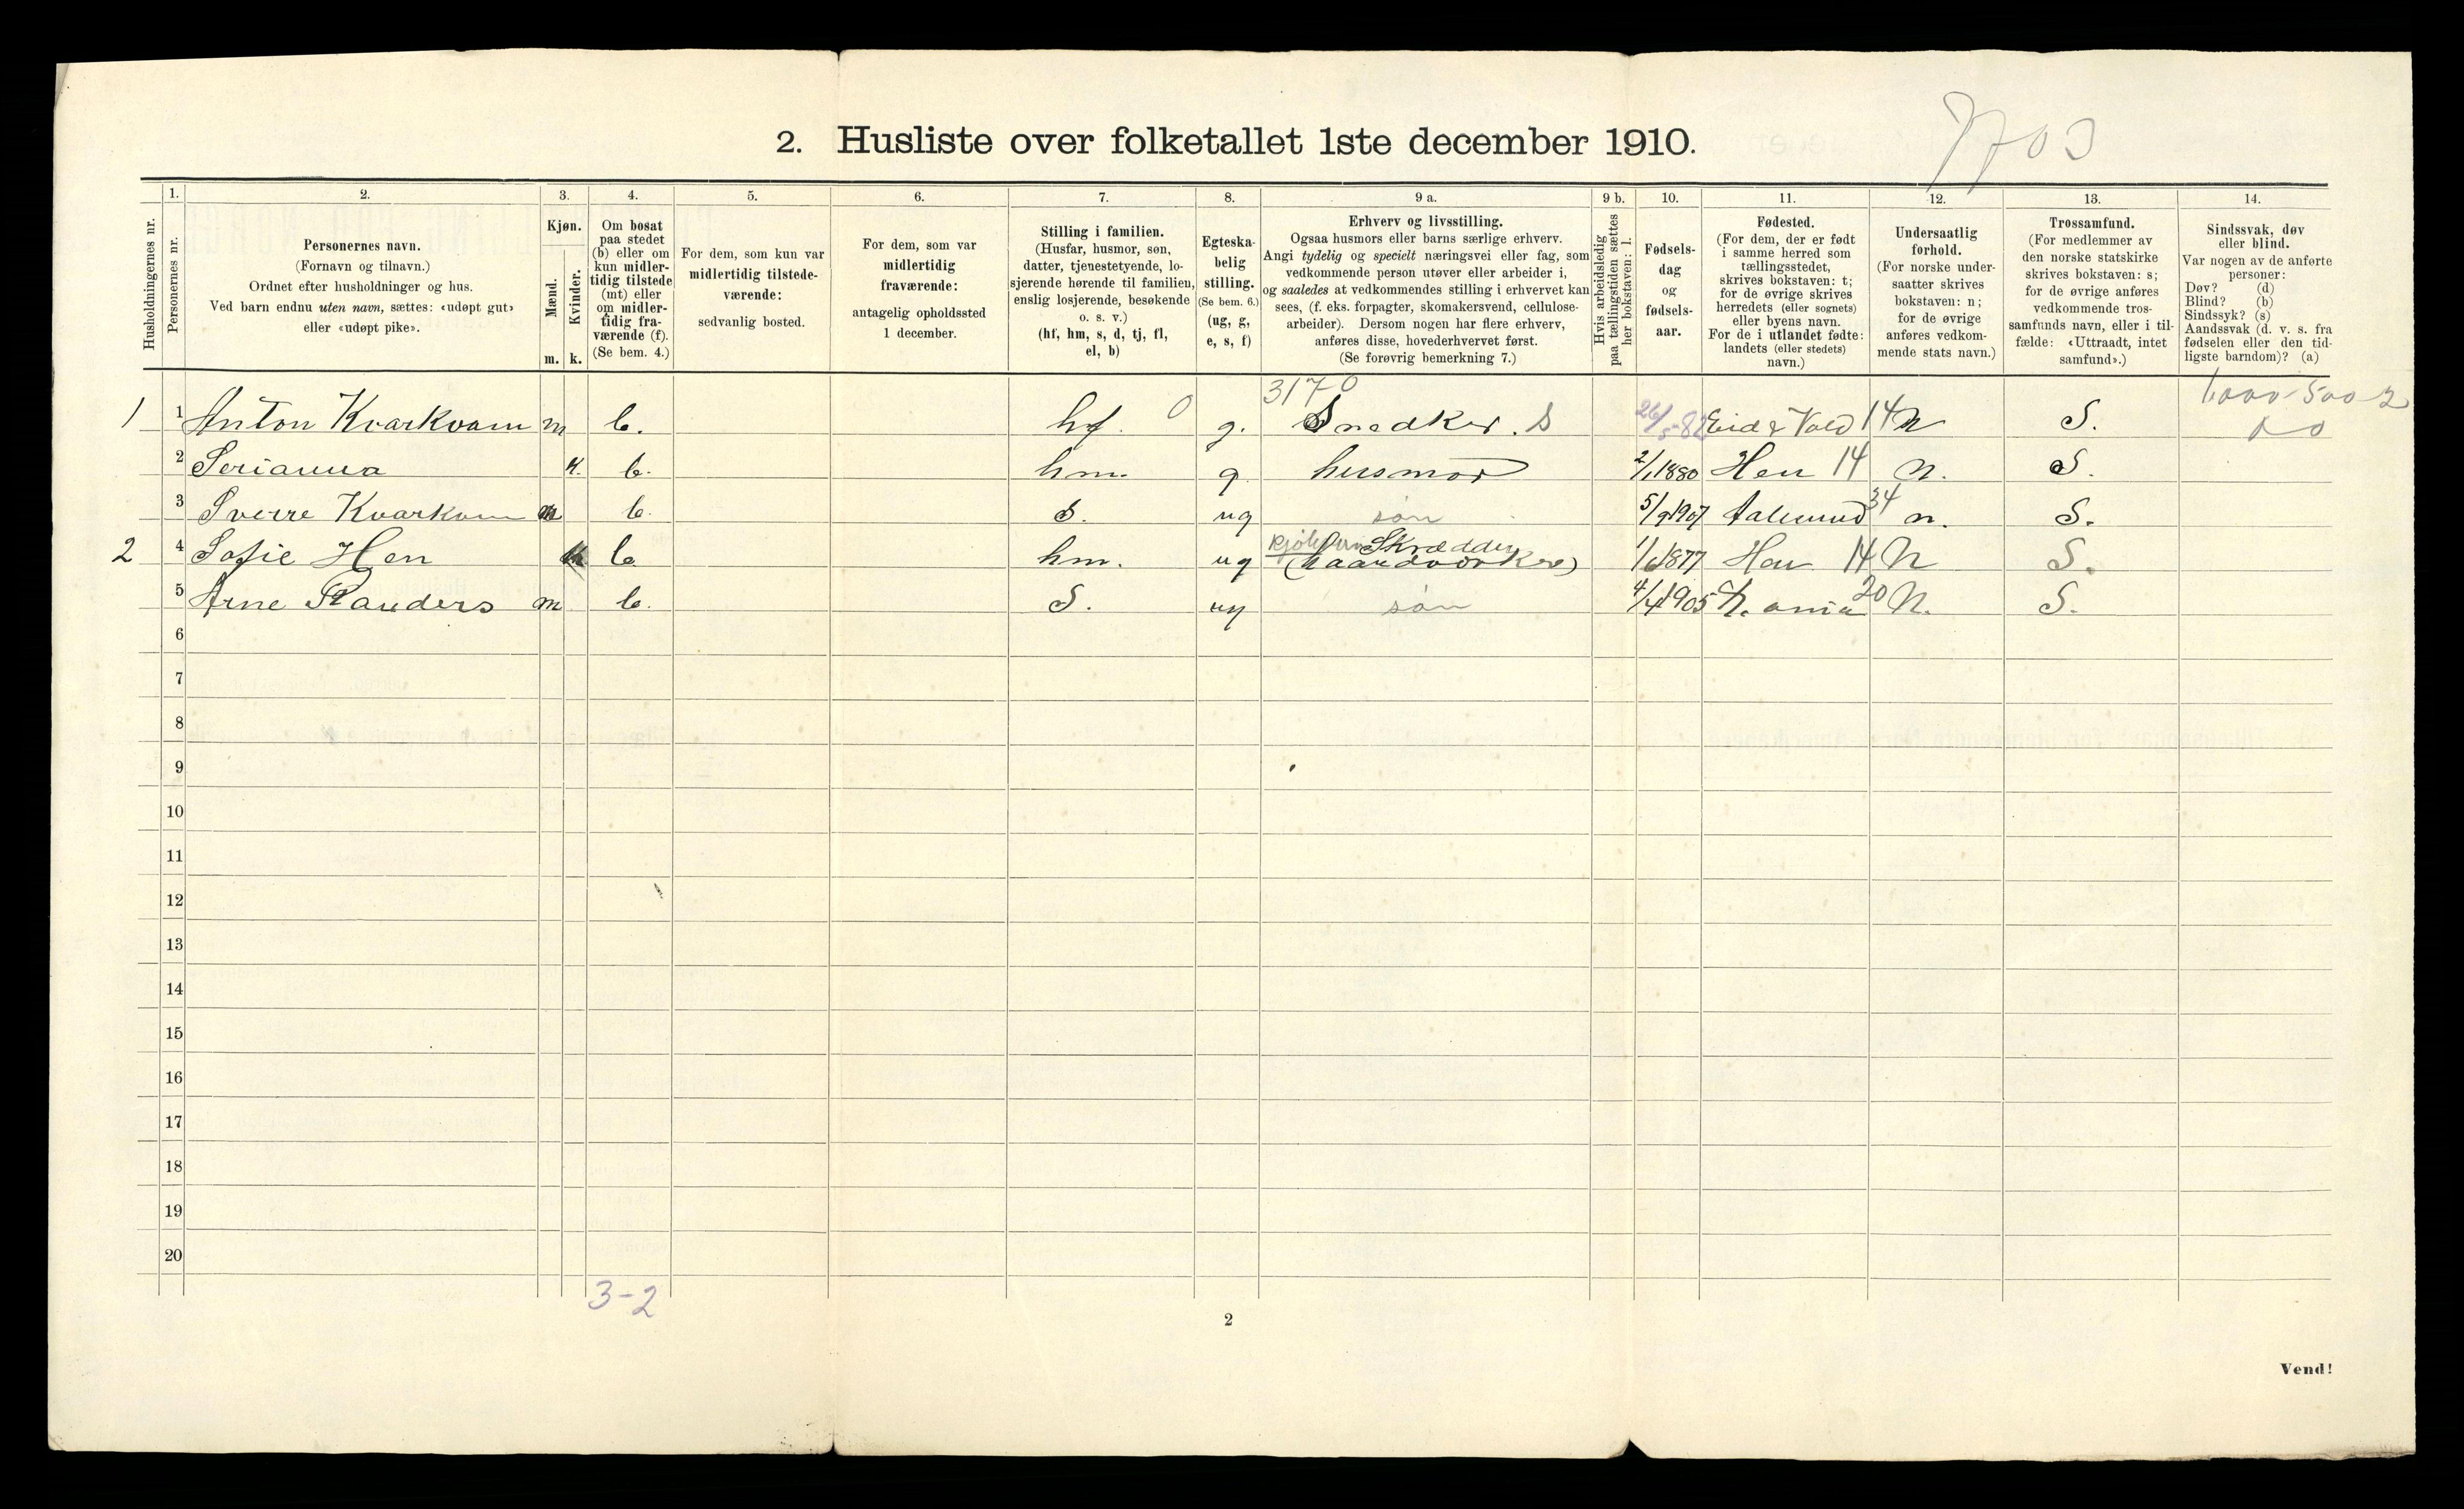 7703
2. Husliste over folketallet 1ste december 1910.
Husholdningernes nr.
1.
Personernes nr.
2.
Personernes navn.
(Fornavn og tilnavn.)
Ordnet efter husholdninger og hus.
Ved barn endnu uten navn, sættes: «udøpt gut»
eller «udøpt pike».
3.
Kjøn.
Mænd.
Kvinder.
m. k.
4.
Om bosat
paa stedet
(b) eller om
kun midler-
tidig tilstede
(mt) eller
om midler-
tidig fra-
værende (f).
(Se bem. 4.)
5.
For dem, som kun var
midlertidig tilstede-
værende:
sedvanlig bosted.
6.
For dem, som var
midlertidig
fraværende:
antagelig opholdssted
1 december.
7.
Stilling i familien.
(Husfar, husmor, søn,
datter, tjenestetyende, lo-
sjerende hørende til familien,
enslig losjerende, besøkende
o. s. v.)
(hf, hm, s, d, tj, fl,
el, b)
8.
Egteska-
belig
stilling.
(Se bem. 6.)
(ug, g,
e, s, f)
9 a.
Erhverv og livsstilling.
Ogsaa husmors eller barns særlige erhverv.
Angi tydelig og specielt næringsvei eller fag, som
vedkommende person utøver eller arbeider i,
og saaledes at vedkommendes stilling i erhvervet kan
sees, (f. eks. forpagter, skomakersvend, cellulose-
arbeider). Dersom nogen har flere erhverv,
anføres disse, hovederhvervet først.
(Se forøvrig bemerkning 7.)
9 b.
Hvis arbeidsledig
paa tællingstiden sættes
her bokstaven: l.
10.
Fødsels-
dag
og
fødsels-
aar.
11.
Fødested.
(For dem, der er født
i samme herred som
tællingsstedet,
skrives bokstaven: t;
for de øvrige skrives
herredets (eller sognets)
eller byens navn.
For de i utlandet fødte:
landets (eller stedets)
navn.)
12.
Undersaatlig
forhold.
(For norske under-
saatter skrives
bokstaven: n;
for de øvrige
anføres vedkom-
mende stats navn.)
13.
Trossamfund.
(For medlemmer av
den norske statskirke
skrives bokstaven: s;
for de øvrige anføres
vedkommende tros-
samfunds navn, eller i til-
fælde: «Uttraadt, intet
samfund».)
14.
Sindssvak, døv
eller blind.
Var nogen av de anførte
personer:
Døv? (d)
Blind? (b)
Sindssyk? (s)
Aandssvak (d. v. s. fra
fødselen eller den tid-
ligste barndom)? (a)
3170 1000-500-2
1 1 Anton Kvarkvam m b. hf. 0 g. Snedker. S 26/5-82 Eid & Vold 14 N S.
2 Serianna k. b. hm. g. husmor 2/1 1880 Hen 14 N. S.
3 Sverre Kvarkvam m b. S. ug søn 5/9 1907 Aalesund 34 n. S.
2 4 Sofie Hen k b. hm. ug Skrædder (haandværker) 1/6 1877 Hen 14 N S.
5 Arne Randers m b. S. ug søn 4/4 1905 Kr.ania 20 N. S.
6
7
8
9
10
11
12
13
14
15
16
17
18
19
20
3-2
2
Vend!